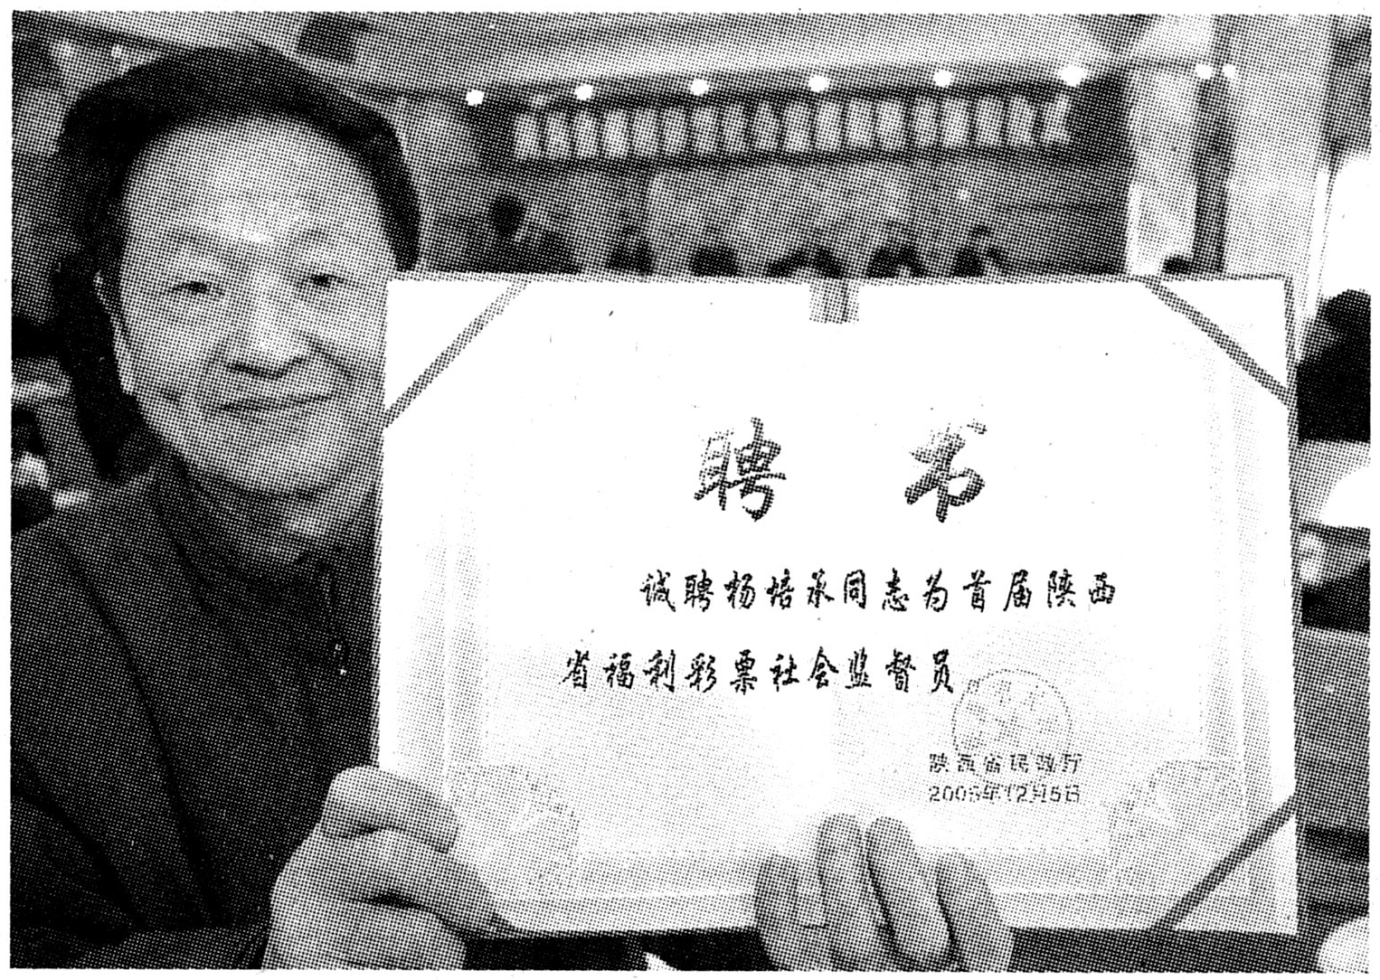 聘 书
诚聘杨培承同志为首届陕西
省福利彩票社会监督员
陕西省民政厅
2005年12月5日